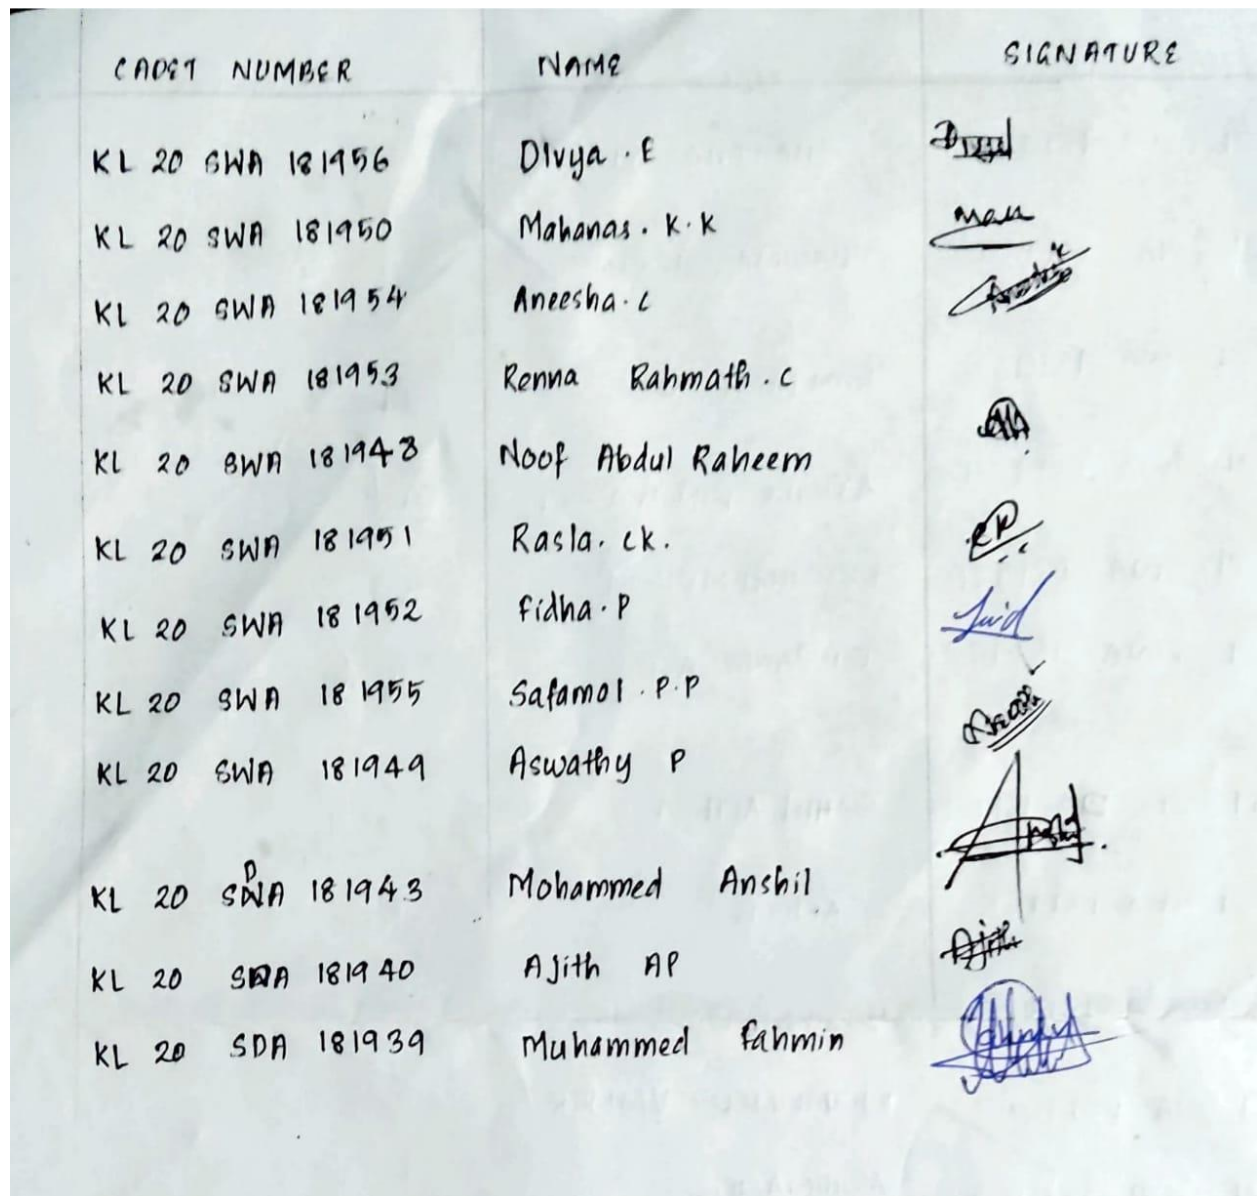 CADET NUMBER NAME SIGNATURE
KL 20 SWA 181956 Divya . E
KL 20 SWA 181950 Mahanas . K. K
KL 20 SWA 181954 Aneesha . C
KL 20 SWA 181953 Renna Rahmath . C
KL 20 SWA 181948 Noof Abdul Raheem
KL 20 SWA 181951 Rasla. Ck.
KL 20 SWA 181952 Fidha . P
KL 20 SWA 181955 Safamol . P. P
KL 20 SWA 181949 Aswathy P
KL 20 SDA 181943 Mohammed Anshil
KL 20 SDA 181940 Ajith AP
KL 20 SDA 181939 Muhammed Fahmin